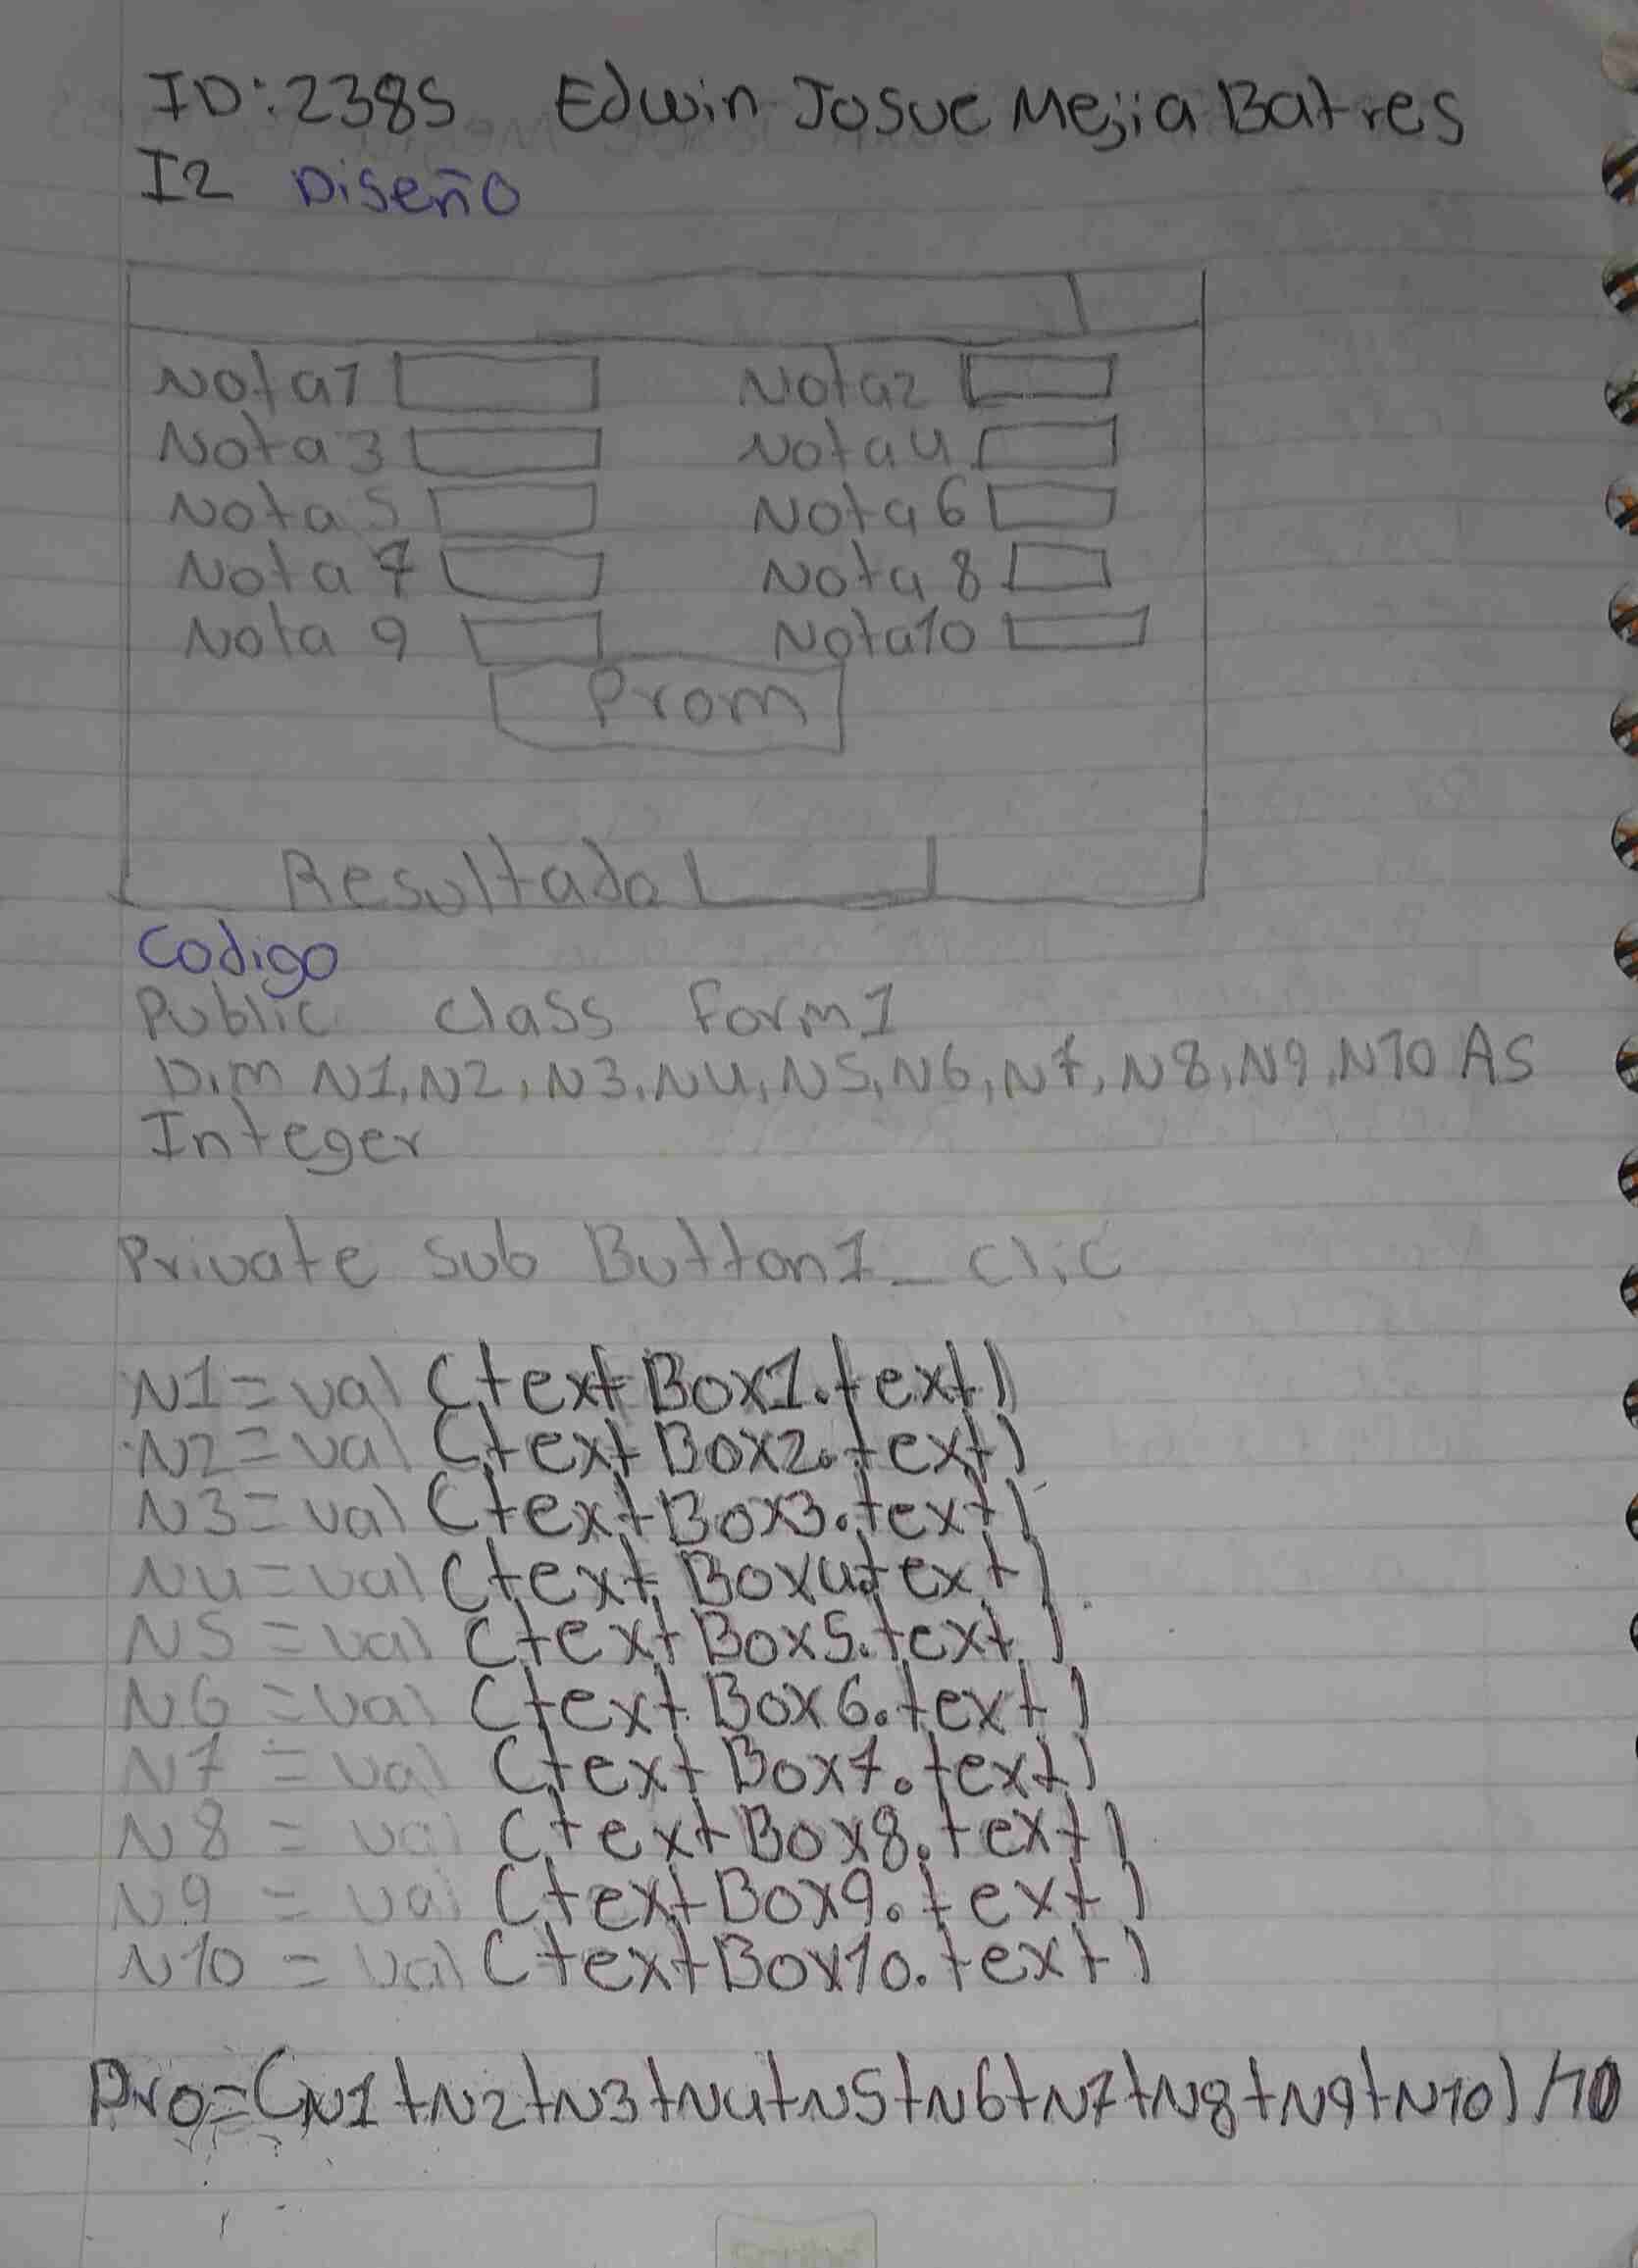 ID:2385 Edwin Josue Mejia Batres
I2 Diseño
Nota1 Nota2
Nota3 Nota4
Nota5 Nota6
Nota7 Nota8
Nota9 Nota10
Prom
Resultado
Codigo
Public class form1
Dim N1,N2,N3,N4,N5,N6,N7,N8,N9,N10 AS
Integer
Private sub Button1_clic
N1=val (textBox1.text)
N2=val (textBox2.text)
N3=val (textBox3.text)
N4=val (textBox4.text)
N5=val (textBox5.text)
N6=val (textBox6.text)
N7=val (textBox7.text)
N8=val (textBox8.text)
N9=val (textBox9.text)
N10=val (textBox10.text)
Pro=(N1+N2+N3+N4+N5+N6+N7+N8+N9+N10)/10